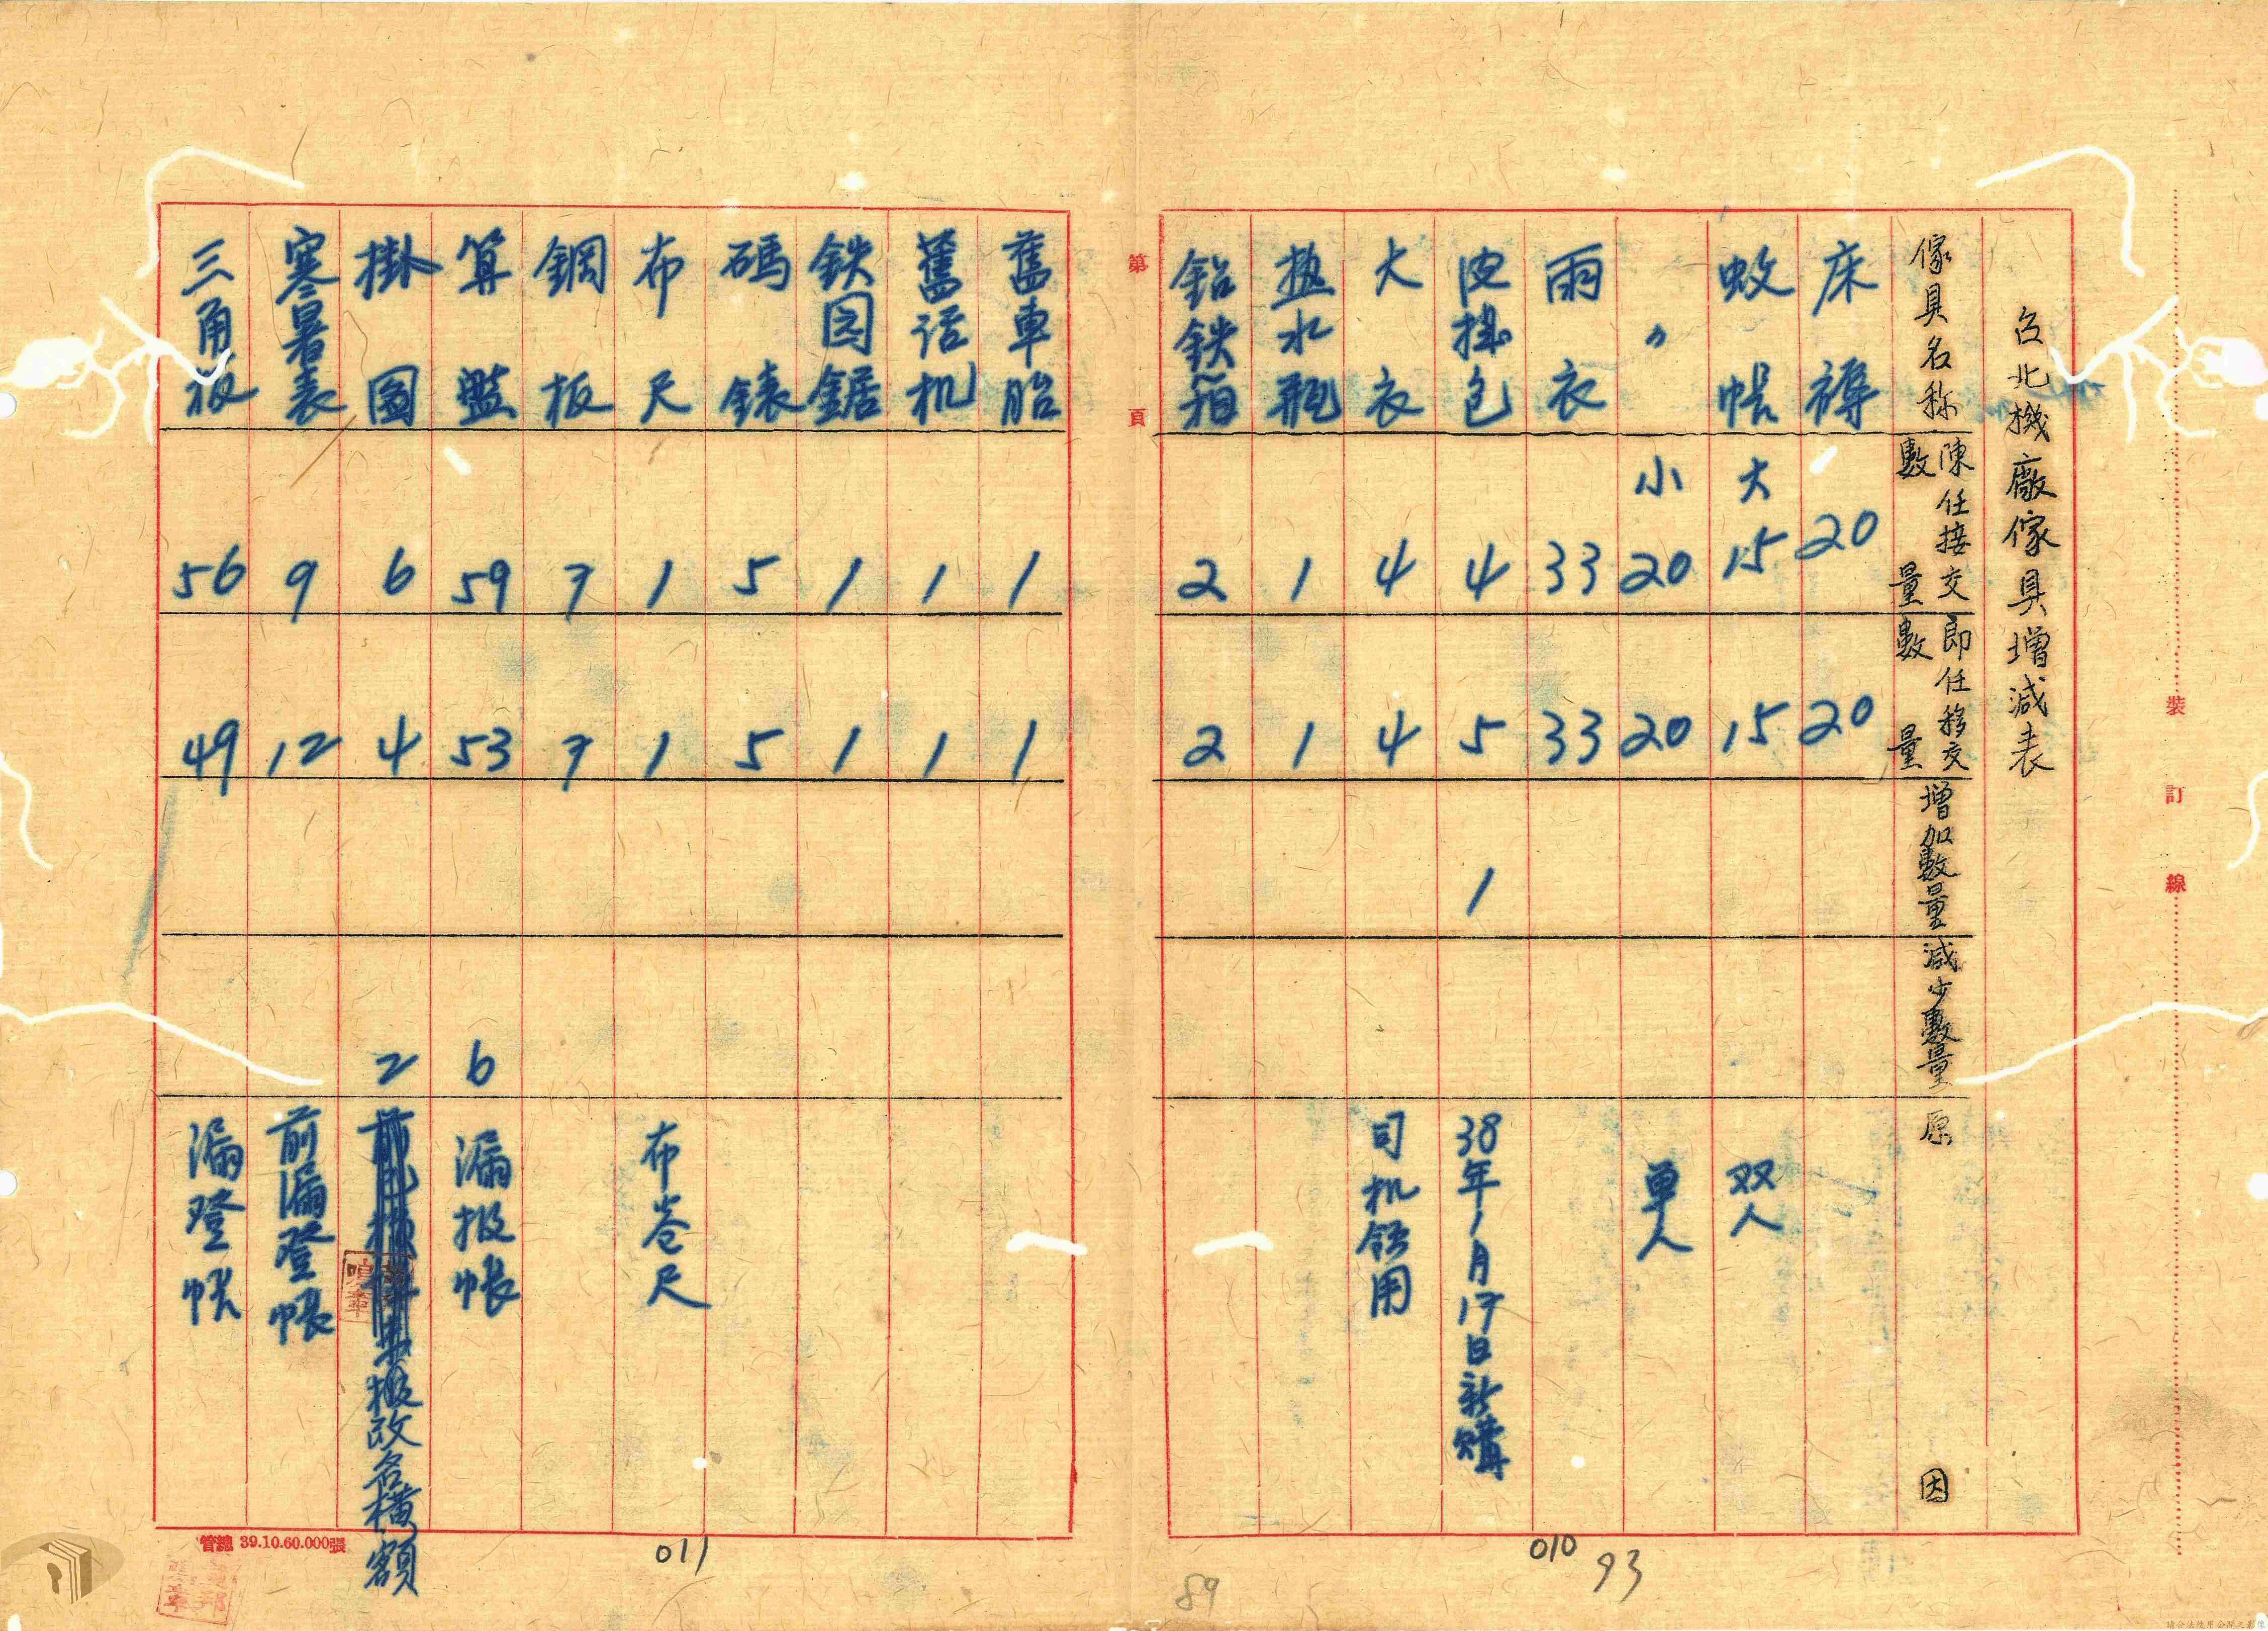 台北機廠傢具增減表
傢具名称 陳任接交數量 郎任移交數量 增加數量 減少數量 原因
床褥 20 20
蚊帐 大 15 15 双人
〃 小 20 20 单人
雨衣 33 33
皮掛包 4 5 1 38年1月17日新購
大衣 4 4 司机領用
热水瓶 1 1
鉛鉄箱 2 2
第 頁
舊車胎 1 1
舊话机 1 1
鉄园鋸 1 1
碼錶 5 5
布尺 1 1 布卷尺
鋼板 7 7
算盤 59 53 6 漏报帐
掛圖 6 4 2 改名横額
寒暑表 9 12 前漏登帐
三角板 56 49 漏登帐
裝訂線
管總 39.10.60.000張
011
010
93
89